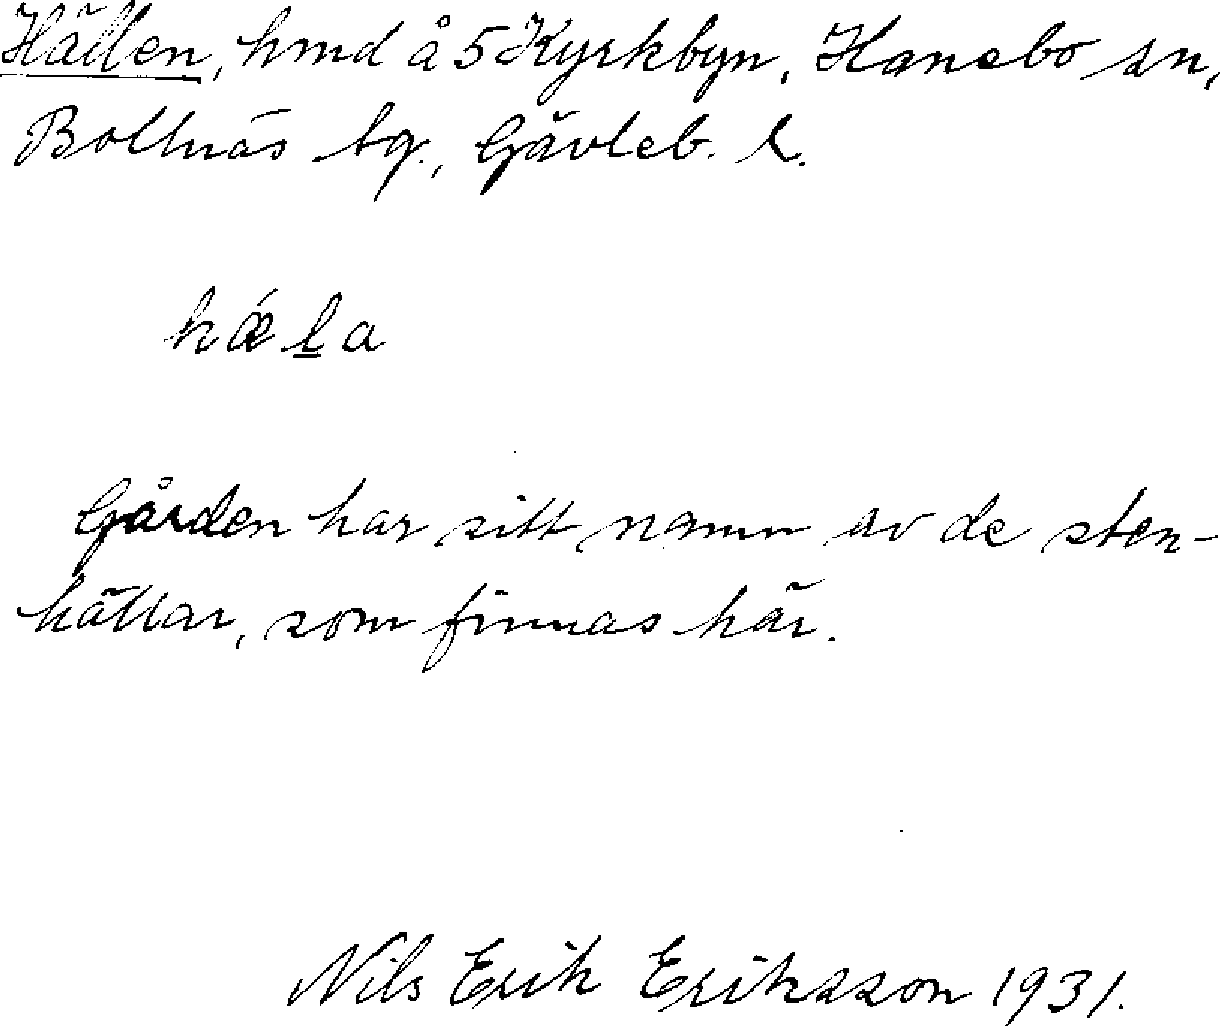 Hällen, hmd å 5 Kyrkbyn, Hanebo sn,
Bollnäs tg., Gävleb. l.
hǽl̲a
Gården har sitt namn av de sten-
hällar, som finnas här.
Nils Erik Eriksson 1931.